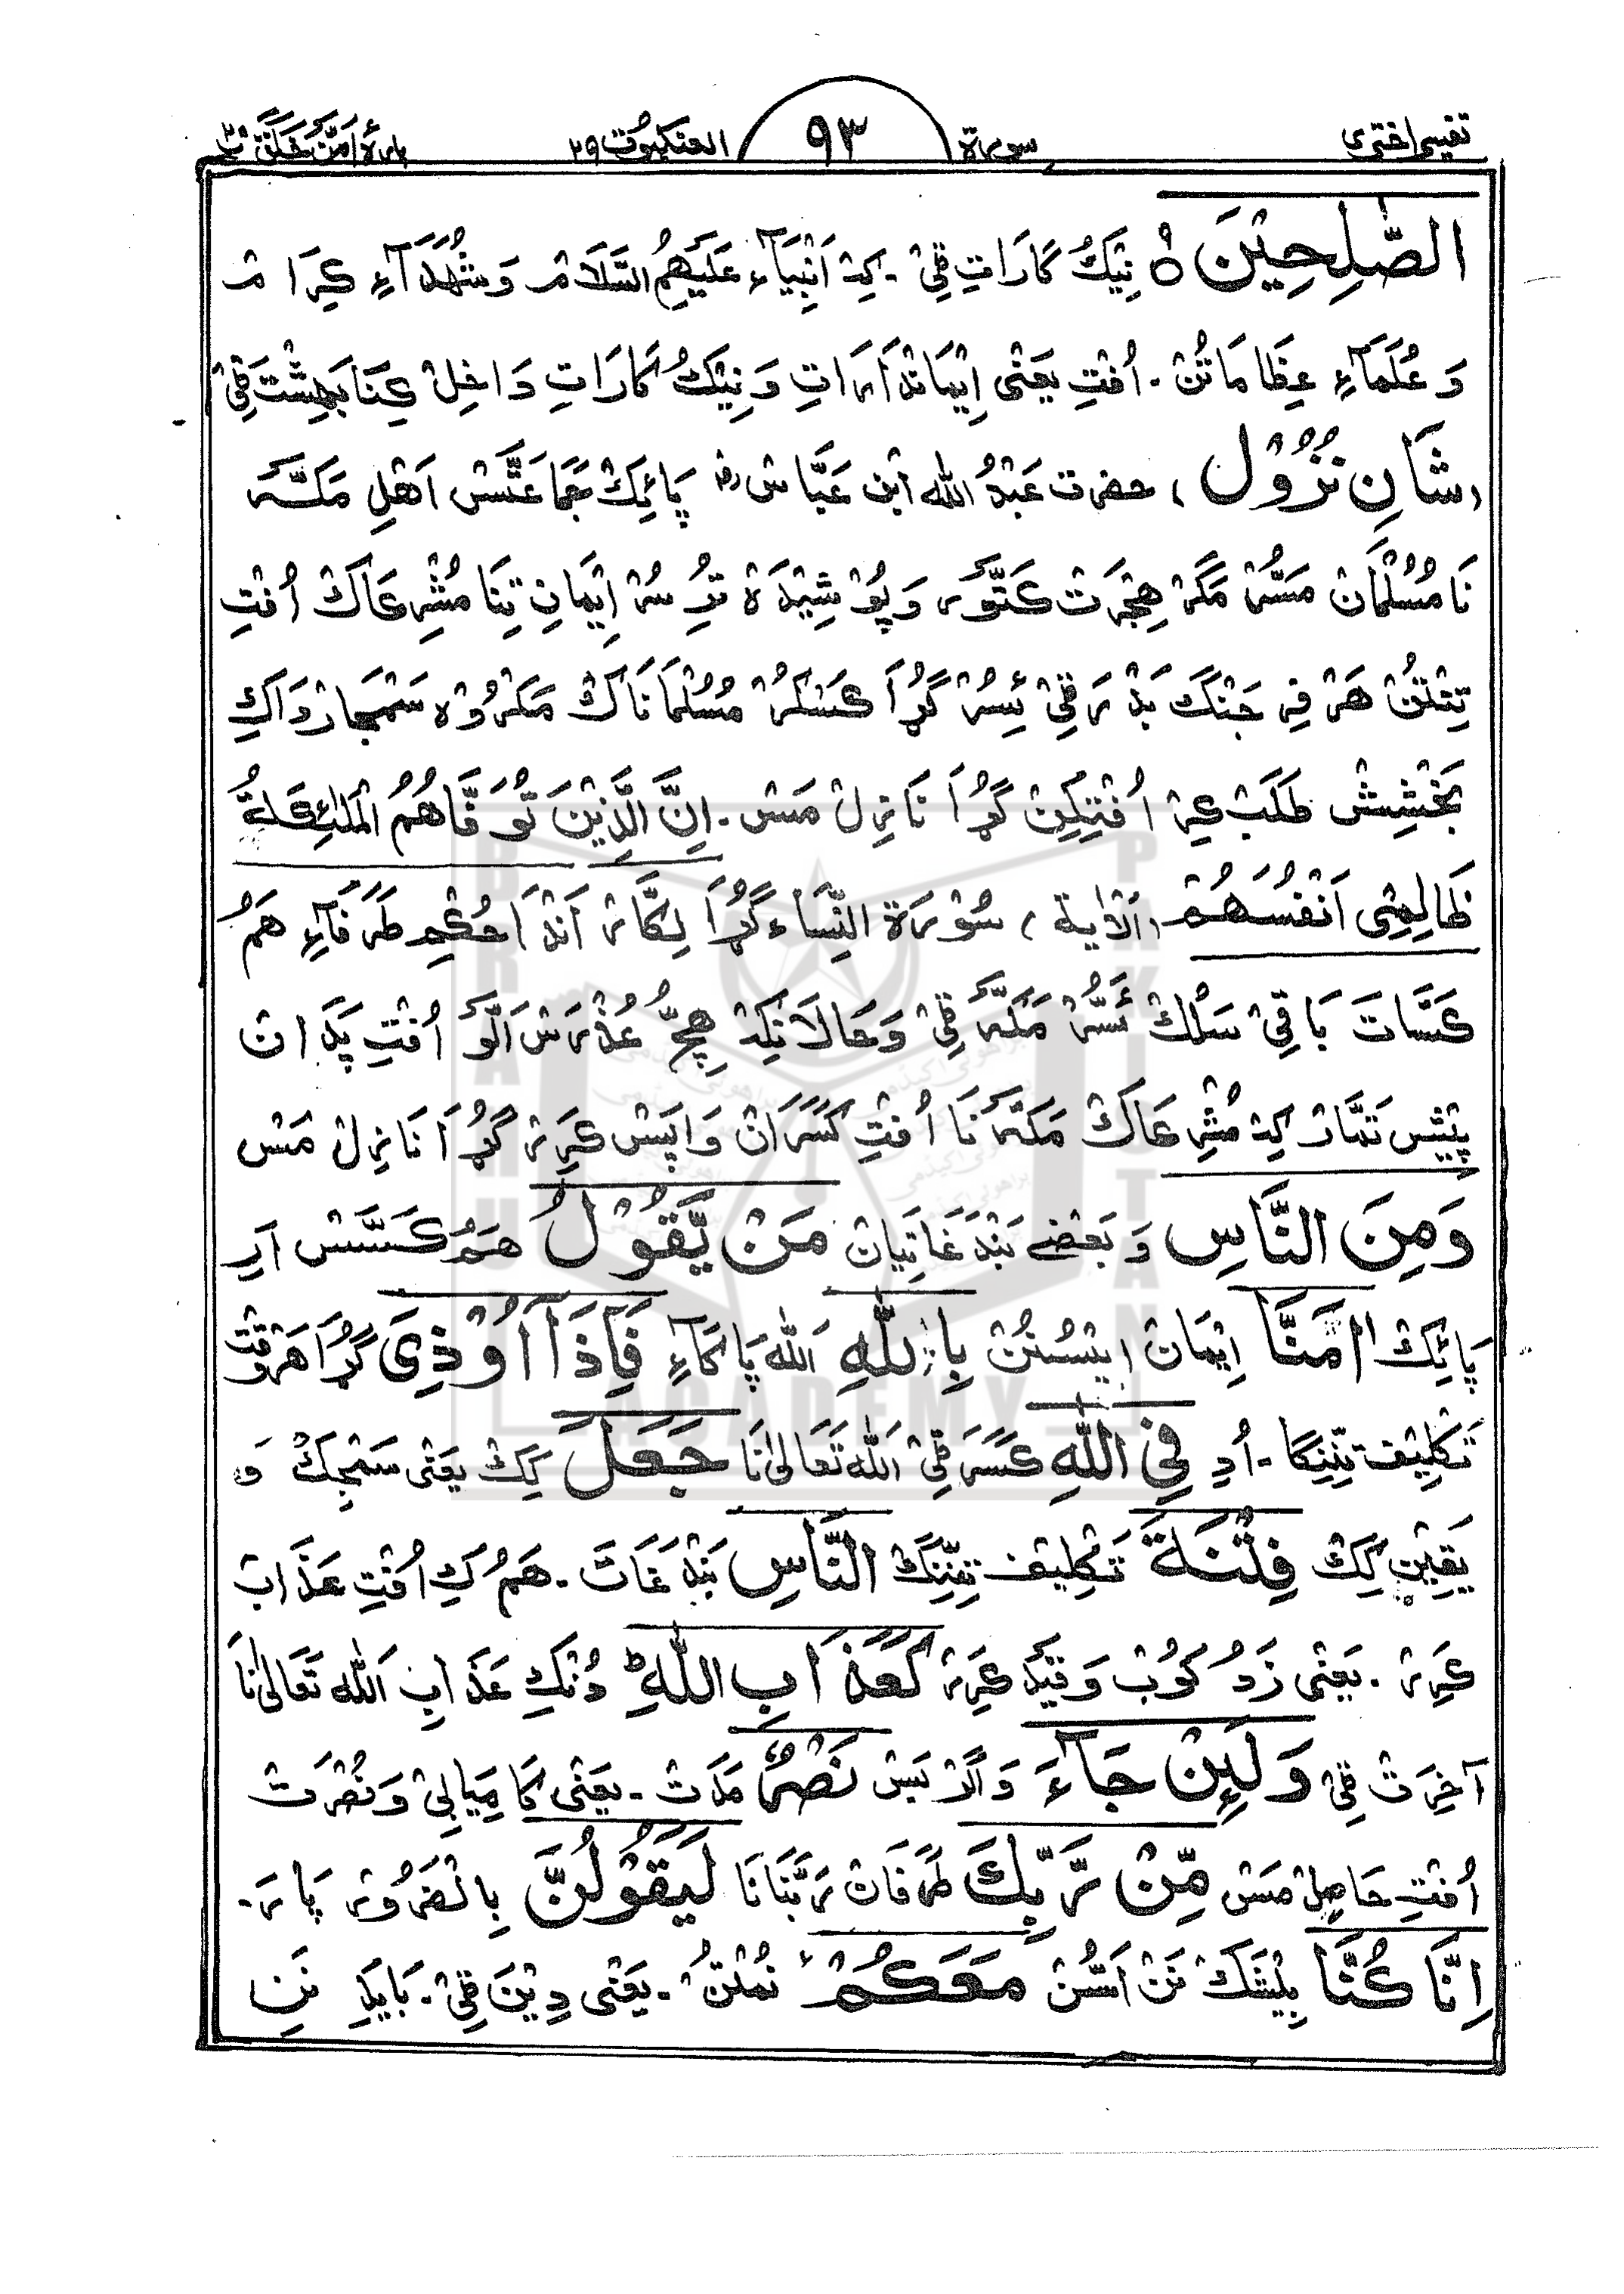 تفسیر اختری سورة ٩٣ العنکبوت ٢٩ پارهٔ اَمَّنْ خَلَقَ ٢٠
الصّٰلِحِيْنَ ہ نِیْکُ کَارَاتِ ٹِیْ ۔ کِہْ اَنْبِیَآء عَلَیْهِمُ السَّلَامْ وَ شُهَدَآءِ کِرَامْ
وَ عُلَمَآءِ عِظَامَاتُنْ ۔ اُفْتِ یَعْنٖی اِیْمَانْدَارَاتِ وَ نِیْکُ کَارَاتِ دَاخِلْ کِنَا بَهِشْتَ ٹِیْ
(شَانِ نُزُوْل) حضرت عَبْدُ اللّٰه ابن عَبَّاسْ رض پَائِکْ جَمَاعَتَّسْ اَهْلِ مَکَّہ
نَا مُسُلْمَانْ مَسُّرْ مَگَرْ هِجْرَتْ کَتَّوْر وَ پُوْشِیْدَہ تُرِسُرْ اِیْمَانِ تِنَا مُشْرِکَاکْ اُفْتِ
تِتْلَتُنْ هَرْفِرْ جَنْگَ بَدْرَ ٹِیْ بِسُرْ گُڑَا کَسْکُرْ مُسُلْمَانَاکْ مَکْرُوْہ سَمْجَارْ دَاکِ
بَخْشِشْ طَلَبْ کِرْ اُفْتِکِنْ گُڑَا نَازِلْ مَسْ ۔ اِنَّ الَّذِیْنَ تَوَفّٰهُمُ الْمَلٰٓئِکَةُ
ظَالِمِیْ اَنْفُسِهِمْ (اَلْاٰیة) سُوْرَة النِّسَاء گُڑَا لِکَّارْ اَنْدَا حُکْمِ طَرَفَآءِ هَمُ
کَسَّاتَ بَاقِیْ سَلُکْ اَسُّرْ مَکَّہ ٹِیْ وَ حَالَانْکِہْ هِچّ عُذْرَسْ اَلَّوْ اُفْتِ پَدَانْ
پِتَّیْس تَمَّارْ کِہْ مُشْرِکَاکْ مَکَّہ نَا اُفْتِ کَسَرَانْ وَاپَسْ کَرِرْ گُڑَا نَازِلْ مَسْ
وَمِنَ النَّاسِ وَ بَعْضِے بَنْدَغَاتِیَانْ مَنْ یَّقُوْلُ هَمُ کَسَّسْ اَرِ
پَائِکْ اٰمَنَّا اِیْمَانْ اِیْسُنُنْ بِاللّٰهِ اَللّٰه پَاکَآءِ فَاِذَآ اُوْذِیَ گُڑَا هَرْ وَقْتَ
تَکْلِیْف تِنِنْگَا ۔ اُدِ فِی اللّٰهِ کَسَرَ ٹِیْ اَللّٰه تَعَالٰی نَا جَعَلَ کِکْ یَعْنٖی سَمْجِکْ وَ
یَقِیْن کِکْ فِتْنَةَ تَکْلِیْف تِنِنْگْ النَّاسِ بَنْدَغَاتَ ۔ هَمُ کِ اُفْتِ عَذَابْ
کَرِرْ ۔ یَعْنٖی زَدُ کُوْبْ وَ قَیْد کَرِرْ کَعَذَابِ اللّٰهِ ؕ دُنْکِ عَذَابِ اَللّٰه تَعَالٰی نَا
آخِرَتْ ٹِیْ وَلَئِنْ جَآءَ وَ اَگَرْ بَسْ نَصْرٌ مَدَتْ ۔ یَعْنٖی کَامِیَابِیْ وَ نُصْرَتْ
اُفْتِ حَاصِلْ مَسْ مِّنْ رَّبِّکَ طَرَفَانْ رَبَّنَانَا لَیَقُوْلُنَّ بِالضَّرُوْر پَارَ ۔
اِنَّا کُنَّا بِیْشَکْ نَنْ اَسُّنْ مَعَکُمْ نُمْتُنْ ۔ یَعْنٖی دِیْنَ ٹِیْ ۔ بَایَدِ نَنِ
BRAHUI ACADEMY PAKISTAN